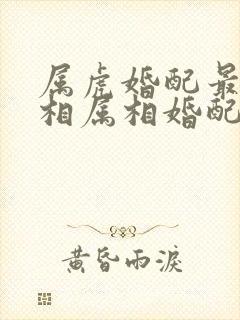 属虎婚配最
相属相婚配
黄昏雨淚